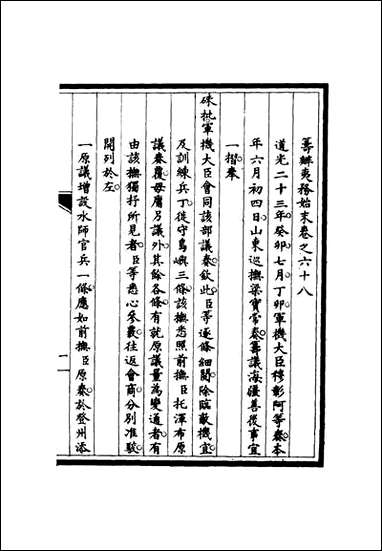 籌辦夷務始末卷之六十八
道光二十三年癸卯七月丁卯軍機大臣穆彰阿等奏本
年六月初四日山東巡撫梁寶常奏籌議海疆善後事宜
一摺奉
硃批軍機大臣會同該部議奏欽此臣等逐條細閱除臨敵機宜
及訓練兵丁徙守島嶼三條該撫悉照前撫臣托渾布原
議奏覆毋庸另議外其餘各條有就原議量為變通者有
由該撫獨抒所見者臣等悉心參覈往返會商分別准駁
開列於左
一原議增設水師官兵一條應如前撫臣原奏於登州添
一